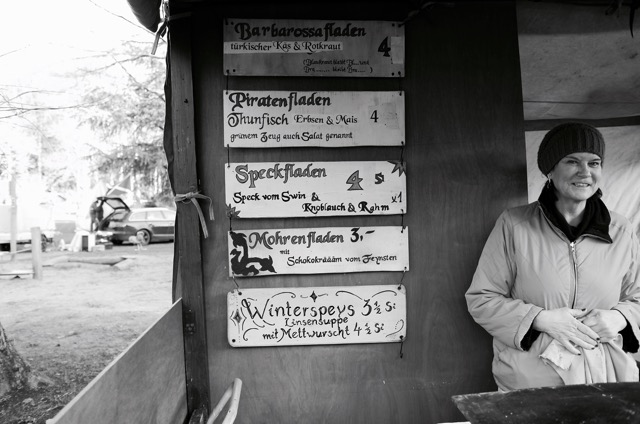 Barbarossafladen
türkischer Käs & Rotkraut 4
Piratenfladen
Thunfisch Erbsen & Mais 4
grünem Zeug auch Salat genannt
Speckfladen 4 Si
Speck vom Swin & x1
Knoblauch & Rahm
Mohrenfladen 3,-
mit
Schokokräääm vom Feynsten
Winterspeys 3½ Si
Linsensuppe
mit Mettwurscht 4½ Si